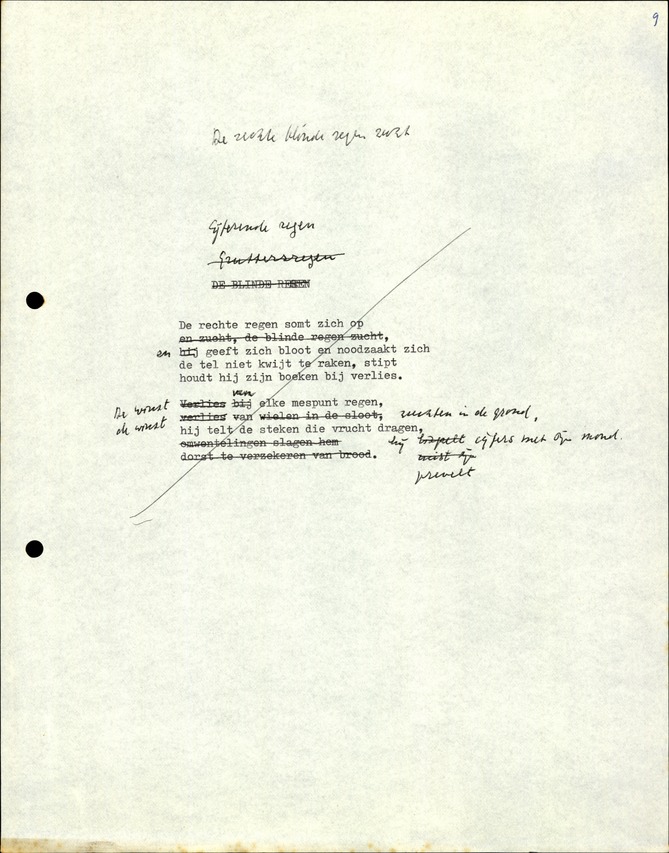 9
De rechte blinde regen recht
Cijferende regen
Gruttersregen
DE BLINDE REGEN
De rechte regen somt zich op
en zucht, de blinde regen zucht,
en hij geeft zich bloot en noodzaakt zich
de tel niet kwijt te raken, stipt
houdt hij zijn boeken bij verlies.
van
De winst Verlies bij elke mespunt regen,
de winst verlies van wielen in de sloot, vruchten in de grond,
hij telt de steken die vrucht dragen,
omwentelingen slagen hem hij cijfers met zijn mond.
dorst te verzekeren van brood. zijn
prevelt